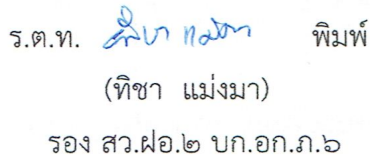 ร.ต.ท. ทิชา แม่งมา พิมพ์
(ทิชา แม่งมา)
รอง สว.ฝอ.๒ บก.อก.ภ.๖